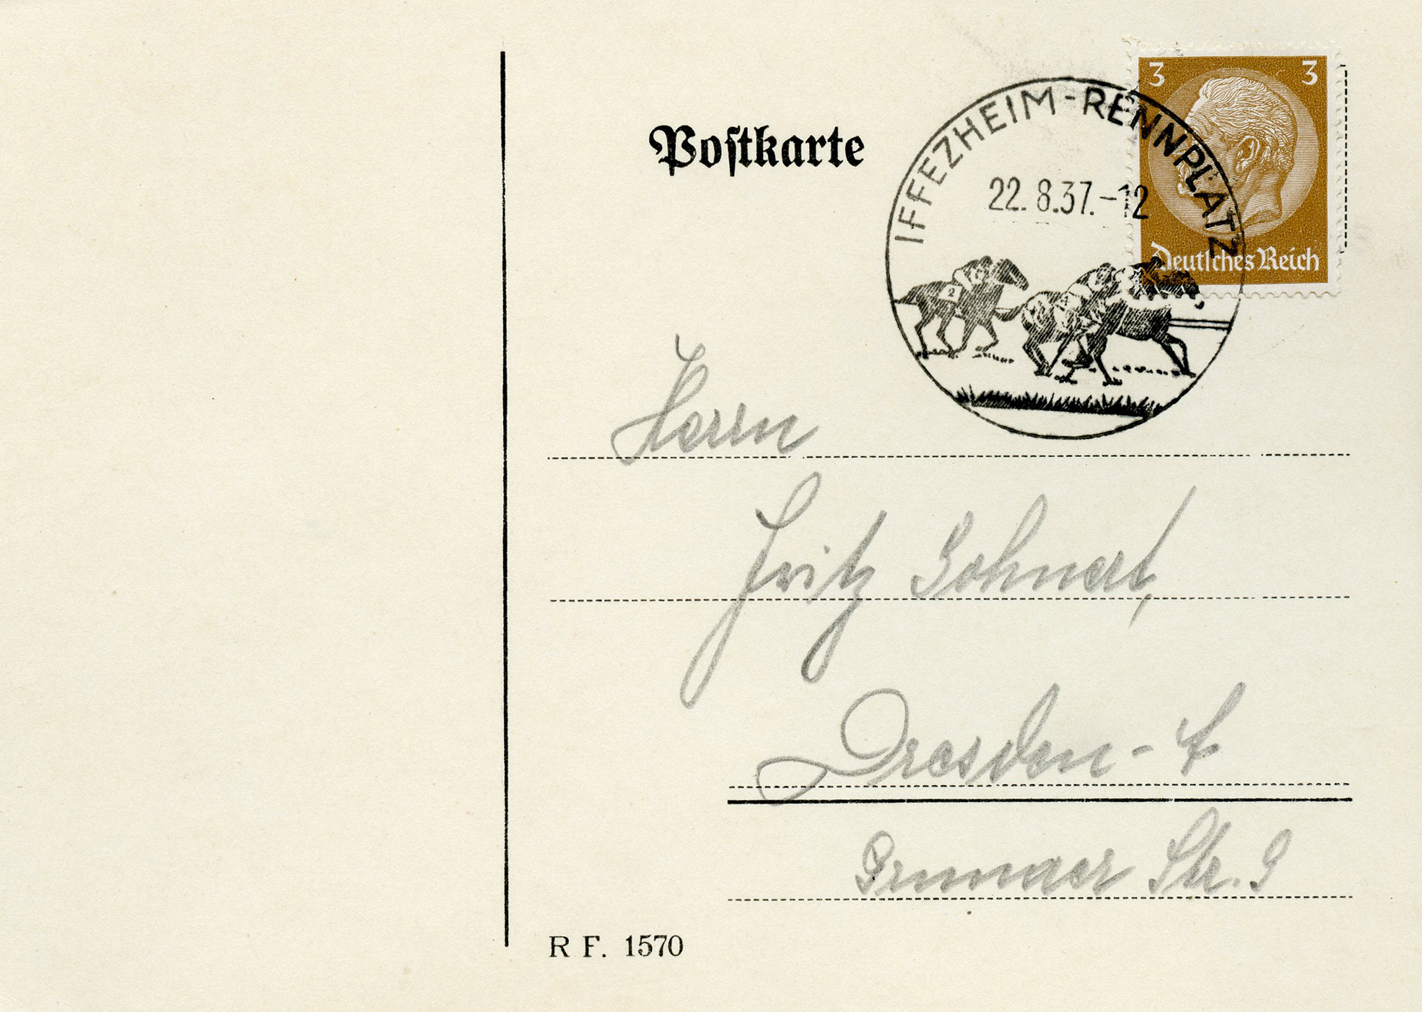 3 3
IFFEZHEIM-RENNPLATZ
Poſtkarte
22.8.37.-12
Deutſches Reich
2
Herrn
Fritz Gohnert,
Dresden-A
Grunaer Str. 9
R F. 1570